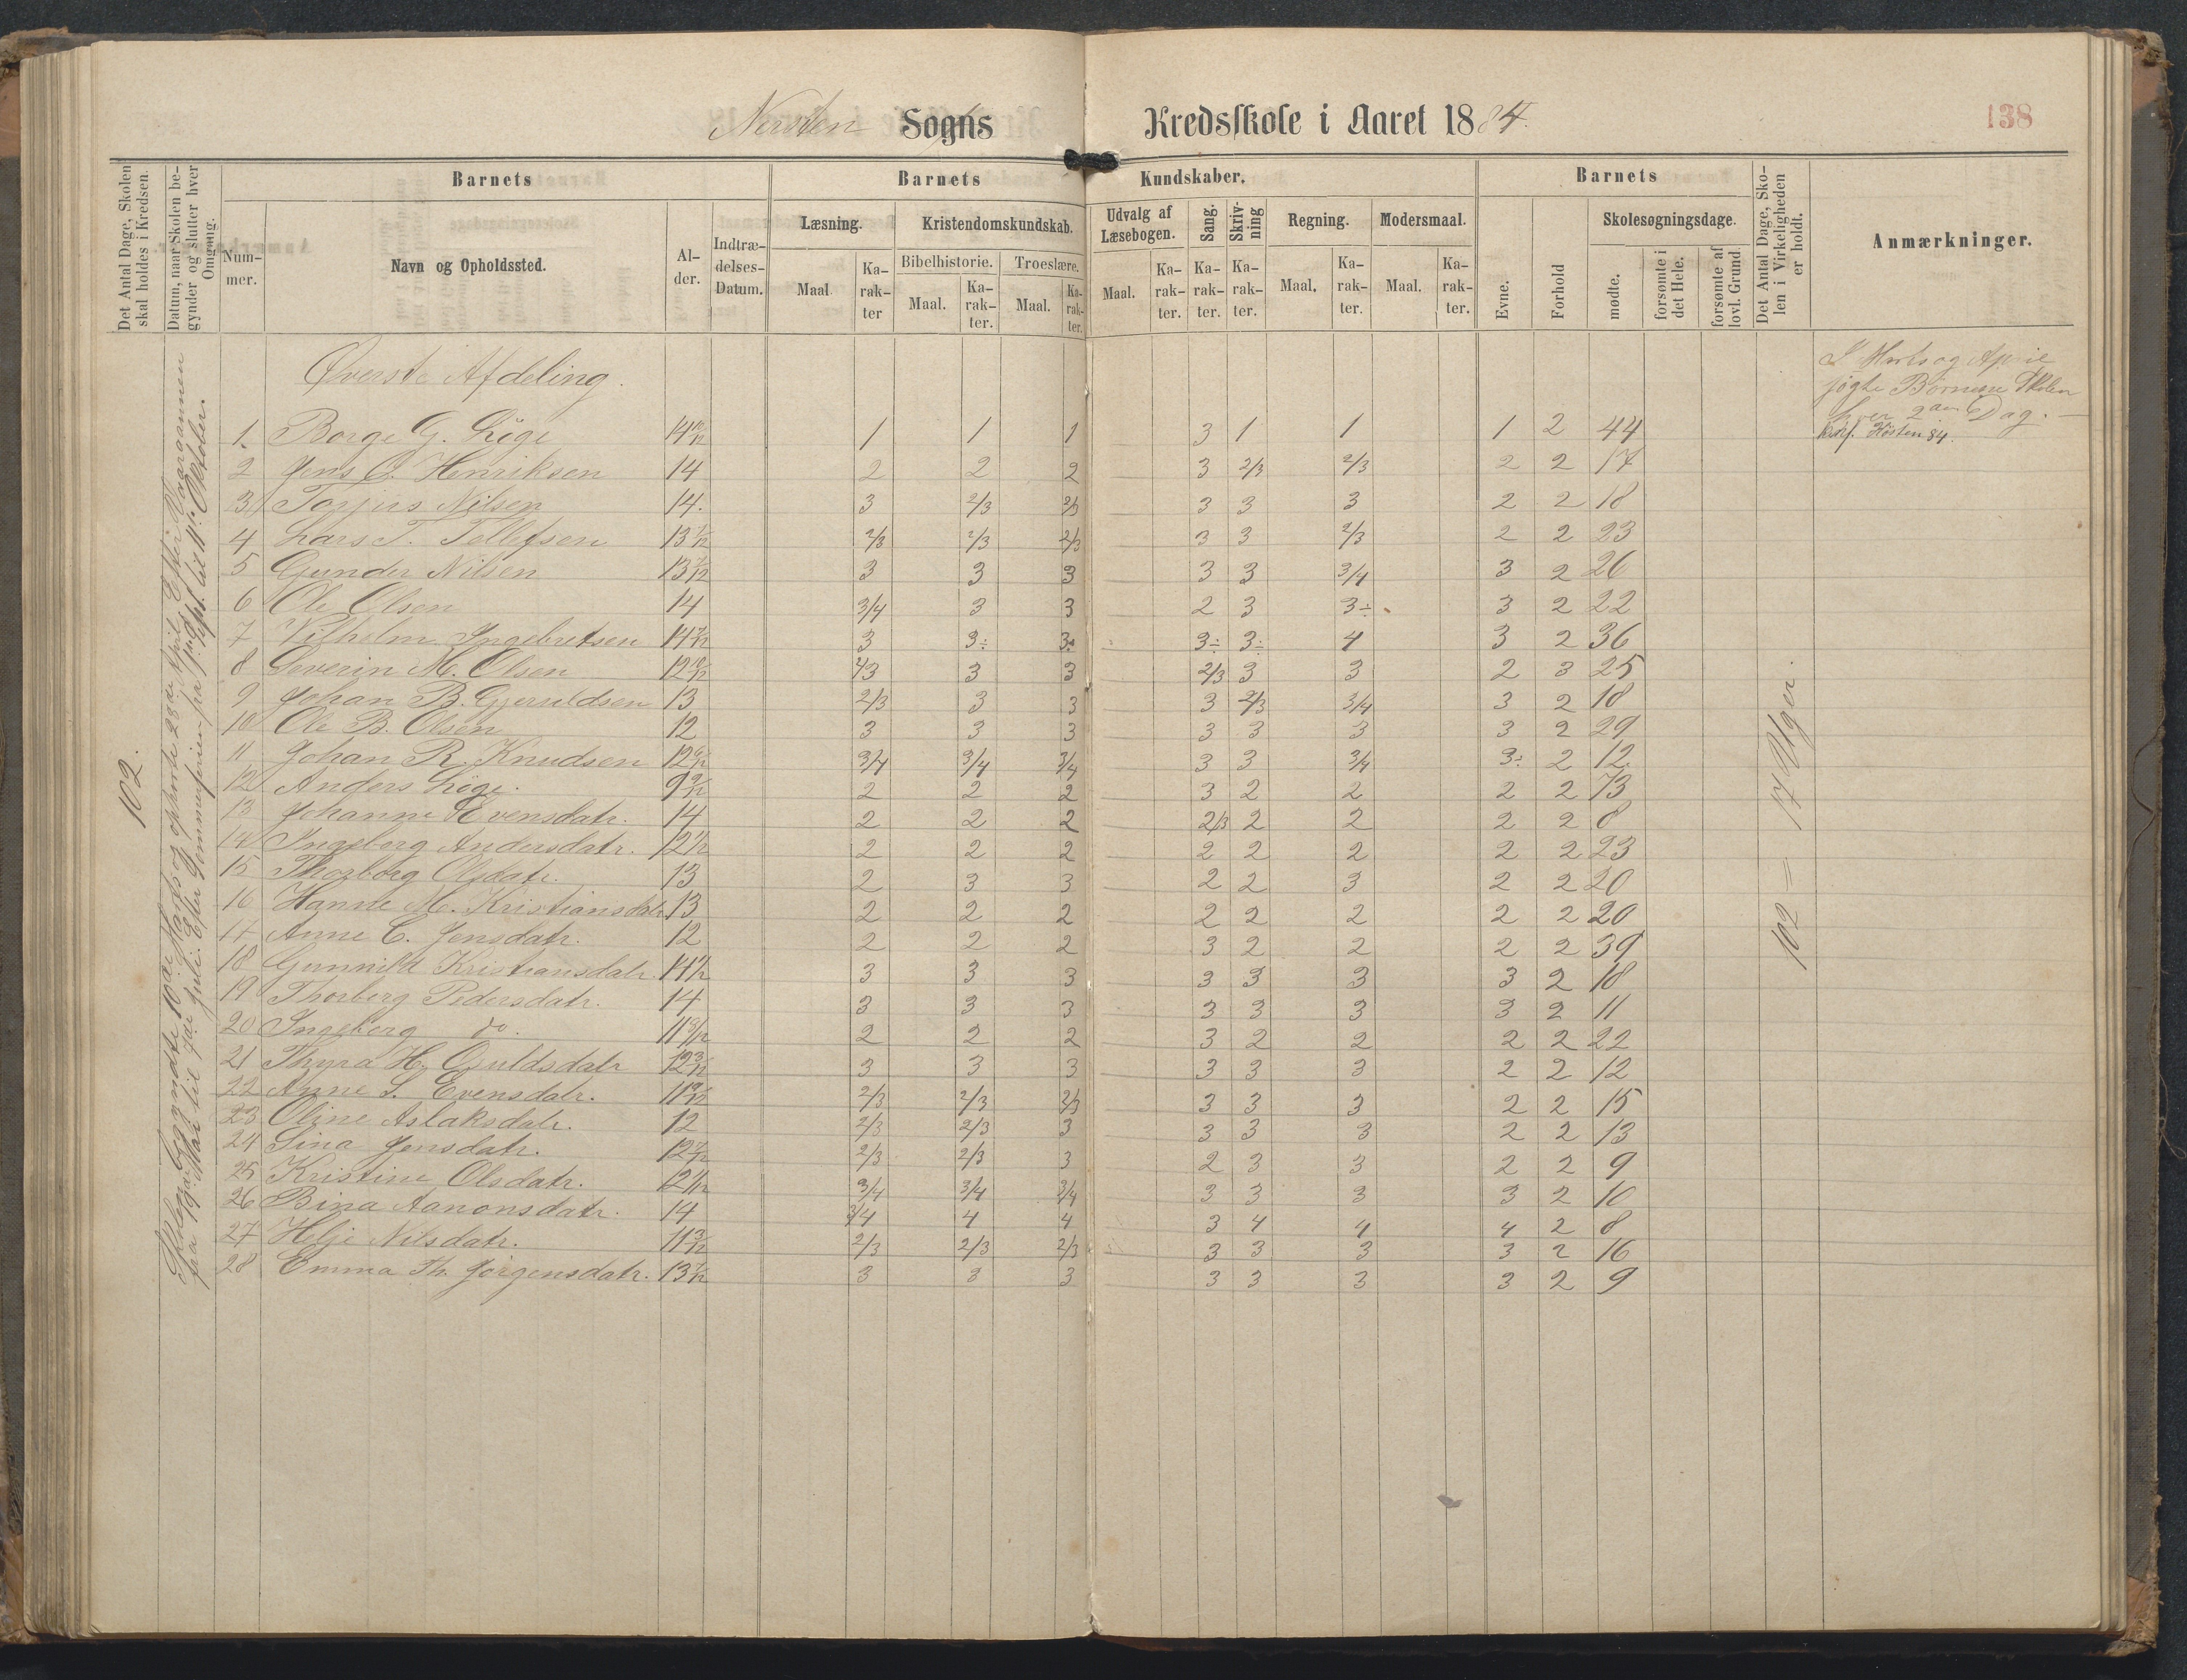 Sogns Kredsskole i Aaret 1884.
138
Det Antal Dage, Skolen skal holdes i Kredsen.
Datum, naar Skolen begynder og slutter hver Omgang.
Barnets
Nummer.
Navn og Opholdssted.
Alder.
Indtrædelses-Datum.
Barnets Kundskaber.
Læsning.
Maal
Karakter
Kristendomskundskab.
Bibelhistorie.
Maal.
Karakter.
Troeslære.
Maal.
Karakter.
Udvalg af Læsebogen.
Maal.
Karakter.
Sang.
Karakter.
Skrivning
Karakter.
Regning.
Maal.
Karakter.
Modersmaal.
Maal.
Karakter.
Barnets
Evne.
Forhold
Skolesøgningsdage.
mødte.
forsømte i det Hele.
forsømte af lovl. Grund
Det Antal Dage, Skolen i Virkeligheden er holdt.
Anmærkninger.
Øverste Afdeling.
I Marts og April
søgte Børnene Skolen
hver 2den Dag.
Konf. Høsten 84.
102.
Skolen begyndte 10de Marts og ophørte 28de April. Efter Vaaraannen
fra 19de Mai til 7de Juli. Efter Sommerferien fra
102 = 17 Uger.
1. Borge G. Löge 14 1 1 1 3 1 1 1 2 44
2 Jens O. Henriksen 14 2 2 2 3 2/3 2/3 2 2 17
3 Torjus Nilsen 14. 3 2/3 2/3 3 3 3 2 2 18
4 Lars T. Tellefsen 13 2/3 2/3 2/3 3 3 2/3 2 2 23
5 Gunder Nilsen 13 3 3 3 3 3 3/4 3 2 26
6 Ole Olsen 14 3/4 3 3 2 3 3÷ 3 2 22
7 Vilhelm Ingebretsen 14 3 3÷ 3÷ 3÷ 3÷ 4 3 2 36
8 Severin M. Olsen 12 2/3 3 3 2/3 3 3 2 3 25
9 Johan B. Gjeruldsen 13 2/3 3 3 3 2/3 3/4 3 2 18
10 Ole B. Olsen 12 3 3 3 3 3 3 3 2 29
11 Johan R. Knudsen 12 3/4 3/4 3/4 3 3 3/4 3÷ 2 12
12 Anders Löge. 9 2 2 2 3 2 2 2 2 73
13 Johanne Evensdatr. 14 2 2 2 2/3 2 2 2 2 8
14 Ingeborg Andersdatr. 12 2 2 2 2 2 2 2 2 23
15 Thorborg Olsdatr. 13 2 3 3 2 2 3 2 2 20
16 Hanne M. Kristiansdatr. 13 2 2 2 2 2 2 2 2 20
17 Anne C. Jensdatr. 12 2 2 2 3 2 2 2 2 39
18 Gunnild Kristiansdatr. 14 3 3 3 3 3 3 3 2 18
19 Thorberg Pedersdatr. 14 3 3 3 3 3 3 3 2 11
20 Ingeborg do. 11 2 2 2 3 2 2 2 2 22
21 Thyra H. 12 3 3 3 3 3 3 2 2 12
22 Anne S. Evensdatr. 11 2/3 2/3 2/3 3 3 3 2 2 15
23 Oline Aslaksdatr. 12 2/3 2/3 3 3 3 3 2 2 13
24 Sina Jensdatr. 12 2/3 2/3 3 2 3 3 2 2 9
25 Kristine Olsdatr. 12 3/4 3/4 3/4 3 3 3 3 2 10
26 Bina Aanonsdatr. 14 3/4 4 4 3 4 4 4 2 8
27 Helje Nilsdatr. 11 2/3 2/3 2/3 3 3 3 3 2 16
28 Emma Th. Jörgensdatr. 13 3 3 3 3 3 3 3 2 9